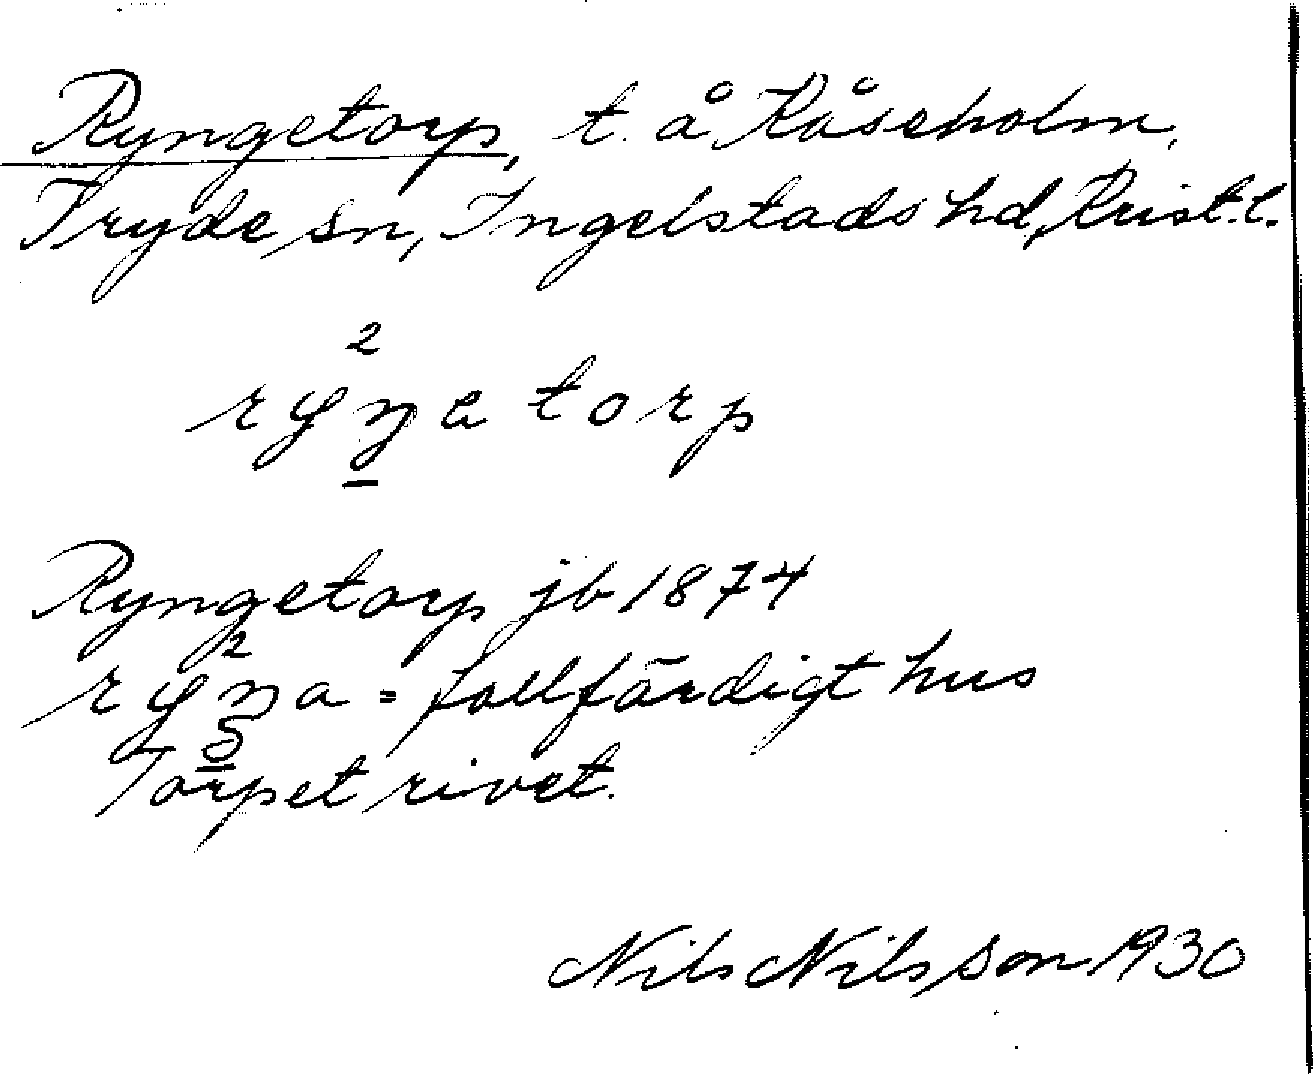 Ryngetorp, t. å Kåseholm,
Tryde sn, Ingelstads hd, Krist. l.
2
ryŋatorp
Ryngetorp jb 1874
2
ryŋa = fallfärdigt hus
Torpet rivet.
Nils Nilsson 1930